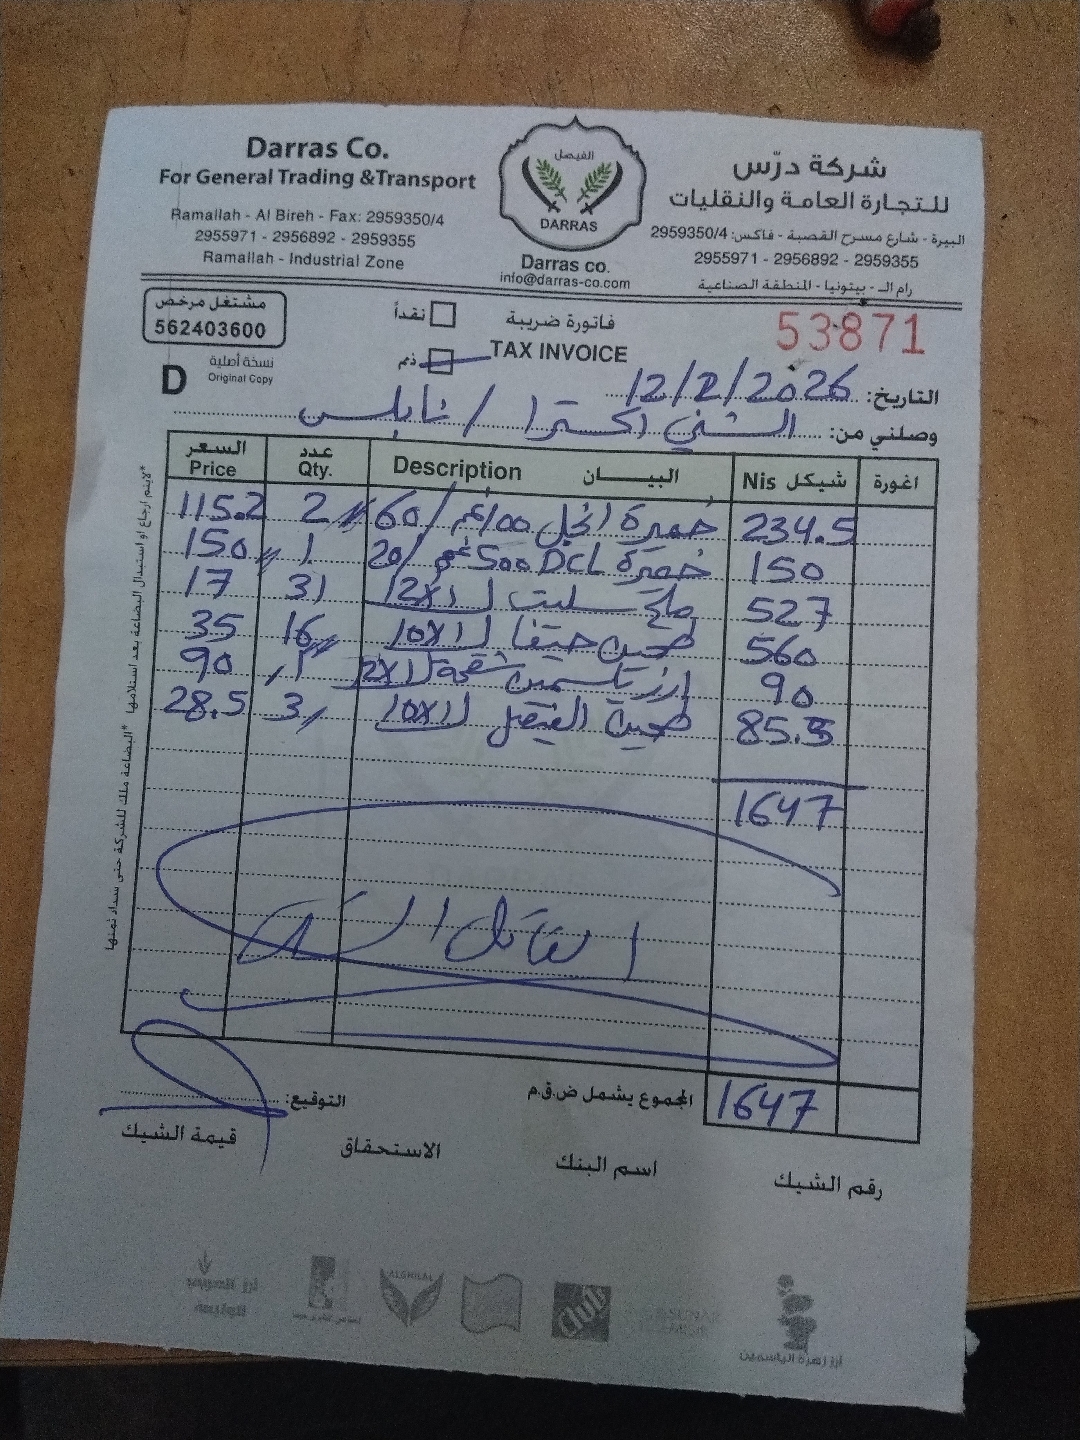 Darras Co.
For General Trading &Transport
Ramallah - Al Bireh - Fax: 2959350/4
2955971 - 2956892 - 2959355
Ramallah - Industrial Zone
الفيصل
DARRAS
Darras co.
info@darras-co.com
شركة درّس
للتجارة العامة والنقليات
البيرة - شارع مسرح القصبة - فاكس: 2959350/4
2955971 - 2956892 - 2959355
رام الـ - بيتونيا - المنطقة الصناعية
مشتغل مرخص
562403600
نسخة أصلية
Original Copy
D
نقداً
ذمم
فاتورة ضريبة
TAX INVOICE
53871
التاريخ: 12/2/2026
وصلني من: الشني اكسترا / نابلس
السعر Price عدد Qty. Description البيـــــان Nis شيكل اغورة
115.2 2 خميرة 100غم / 60 234.5
150 1 خميرة DCL 500غم / 20 150
17 31 ملح سليت 12X1 527
35 16 طحين حيفا 10X1 560
90 1 ارز ياسمين 90
28.5 3 طحين الفيصل 10X1 85.5
1647
المجموع يشمل ض.ق.م 1647
التوقيع:
رقم الشيك اسم البنك الاستحقاق قيمة الشيك
*لايتم ارجاع او استبدال البضاعة بعد استلامها *البضاعة ملك للشركة حتى سداد ثمنها
ALGHILAL
Club
أرز زهرة الياسمين